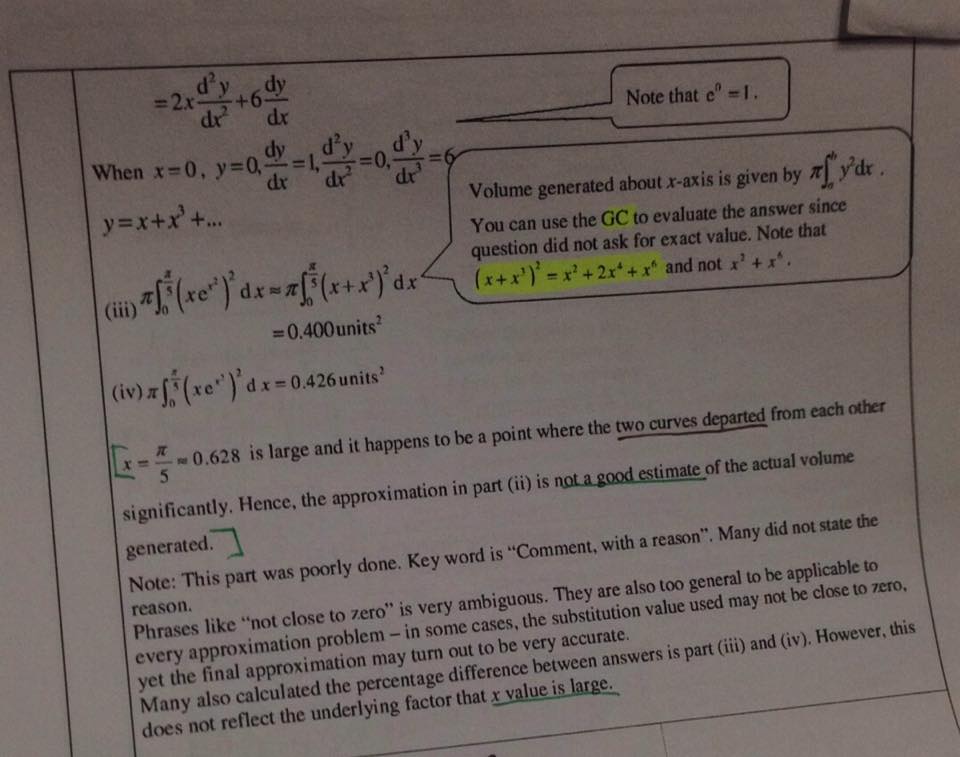 = 2x d²y/dx² + 6 dy/dx
Note that e⁰ = 1.
When x = 0, y = 0, dy/dx = 1, d²y/dx² = 0, d³y/dx³ = 6
y = x + x³ + ...
Volume generated about x-axis is given by π∫ₐᵇ y²dx .
You can use the GC to evaluate the answer since
question did not ask for exact value. Note that
(x + x³)² = x² + 2x⁴ + x⁶ and not x² + x⁶ .
(iii) π∫₀^(π/5) (xe^(x²))² dx ≈ π∫₀^(π/5) (x + x³)² dx
= 0.400 units²
(iv) π∫₀^(π/5) (xe^(x²))² dx = 0.426 units²
x = π/5 ≈ 0.628 is large and it happens to be a point where the two curves departed from each other
significantly. Hence, the approximation in part (ii) is not a good estimate of the actual volume
generated.
Note: This part was poorly done. Key word is “Comment, with a reason”. Many did not state the
reason.
Phrases like “not close to zero” is very ambiguous. They are also too general to be applicable to
every approximation problem – in some cases, the substitution value used may not be close to zero,
yet the final approximation may turn out to be very accurate.
Many also calculated the percentage difference between answers is part (iii) and (iv). However, this
does not reflect the underlying factor that x value is large.